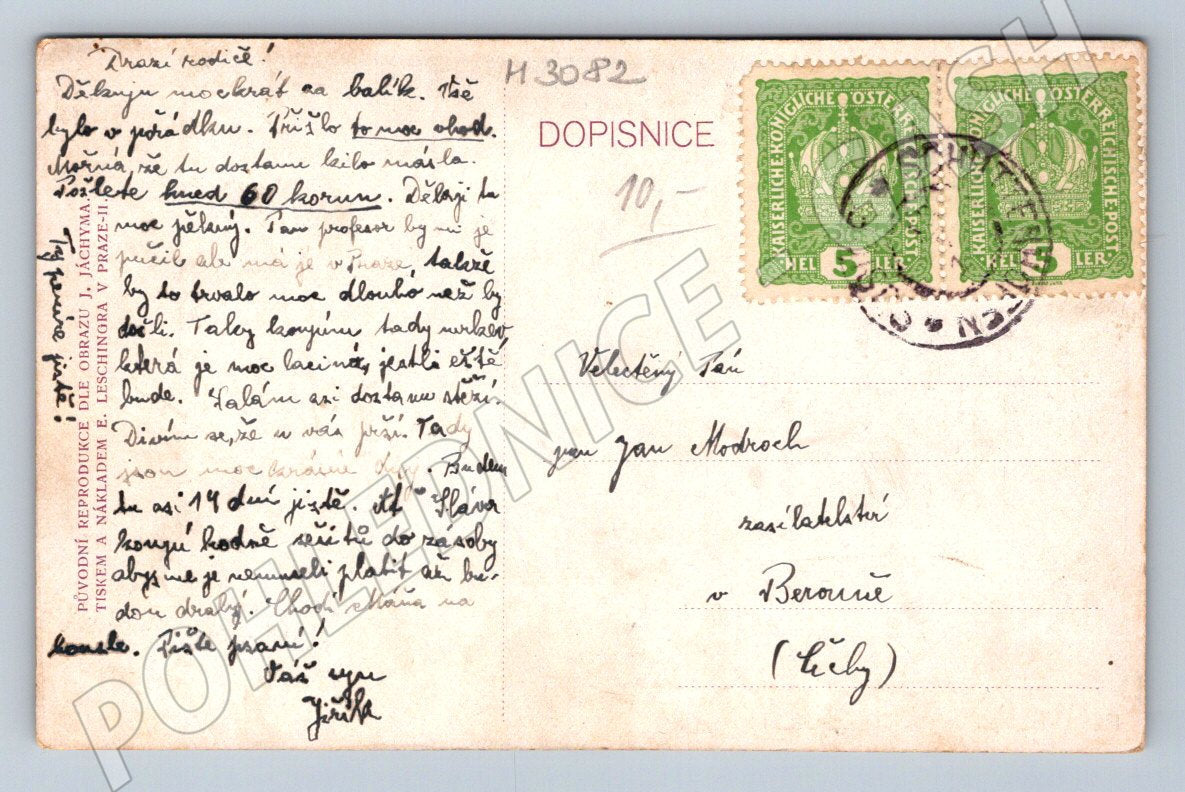 Drazí rodiče!
Děkuju mockrát za balík. Vše
bylo v pořádku. Přišlo to moc vhod.
Možná že tu dostanu kilo másla.
Pošlete hned 60 korun. Děkuji
moc pěkný. Pan profesor by mi je
půčil ale má je v Praze, takže
by to trvalo moc dlouho než by
došli. Taky koupím tady mrkev,
která je moc laciná, jestli eště
bude. Salám asi dostanu stěží.
Divím se, že u vás prší. Tady
jsou moc krásné dny. Budem
tu asi 14 dní jistě. Ať Sláva
koupí hodně sešitů do zásoby
abysme je nemuseli platit až bu-
dou drahý. Chodí Máňa na
Pište psaní!
Váš syn
Jiřík
Ty peníze jistě!
PŮVODNÍ REPRODUKCE DLE OBRAZU J. JÁCHYMA.
TISKEM A NÁKLADEM E. LESCHINGRA V PRAZE-II.
H 3082
DOPISNICE
10,-
KAISERLICHE KÖNIGLICHE ÖSTERREICHISCHE POST
5
HELLER
KAISERLICHE KÖNIGLICHE ÖSTERREICHISCHE POST
5
HELLER
Velectěný Pán
pan Jan Modroch
zasilatelství
v Berouně
(Čechy)
POHLEDNICE